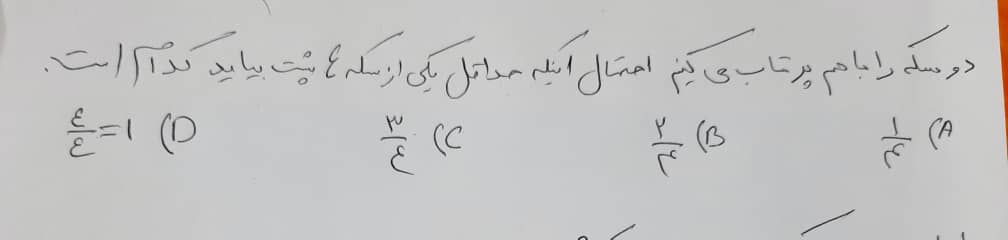 دو سکه را باهم پرتاب می کنیم احتمال اینکه حداقل یکی از سکه ع پشت بیاید کدام است.
A) ۱/۴ B) ۲/۴ C) ۳/۴ D) ۴/۴=۱